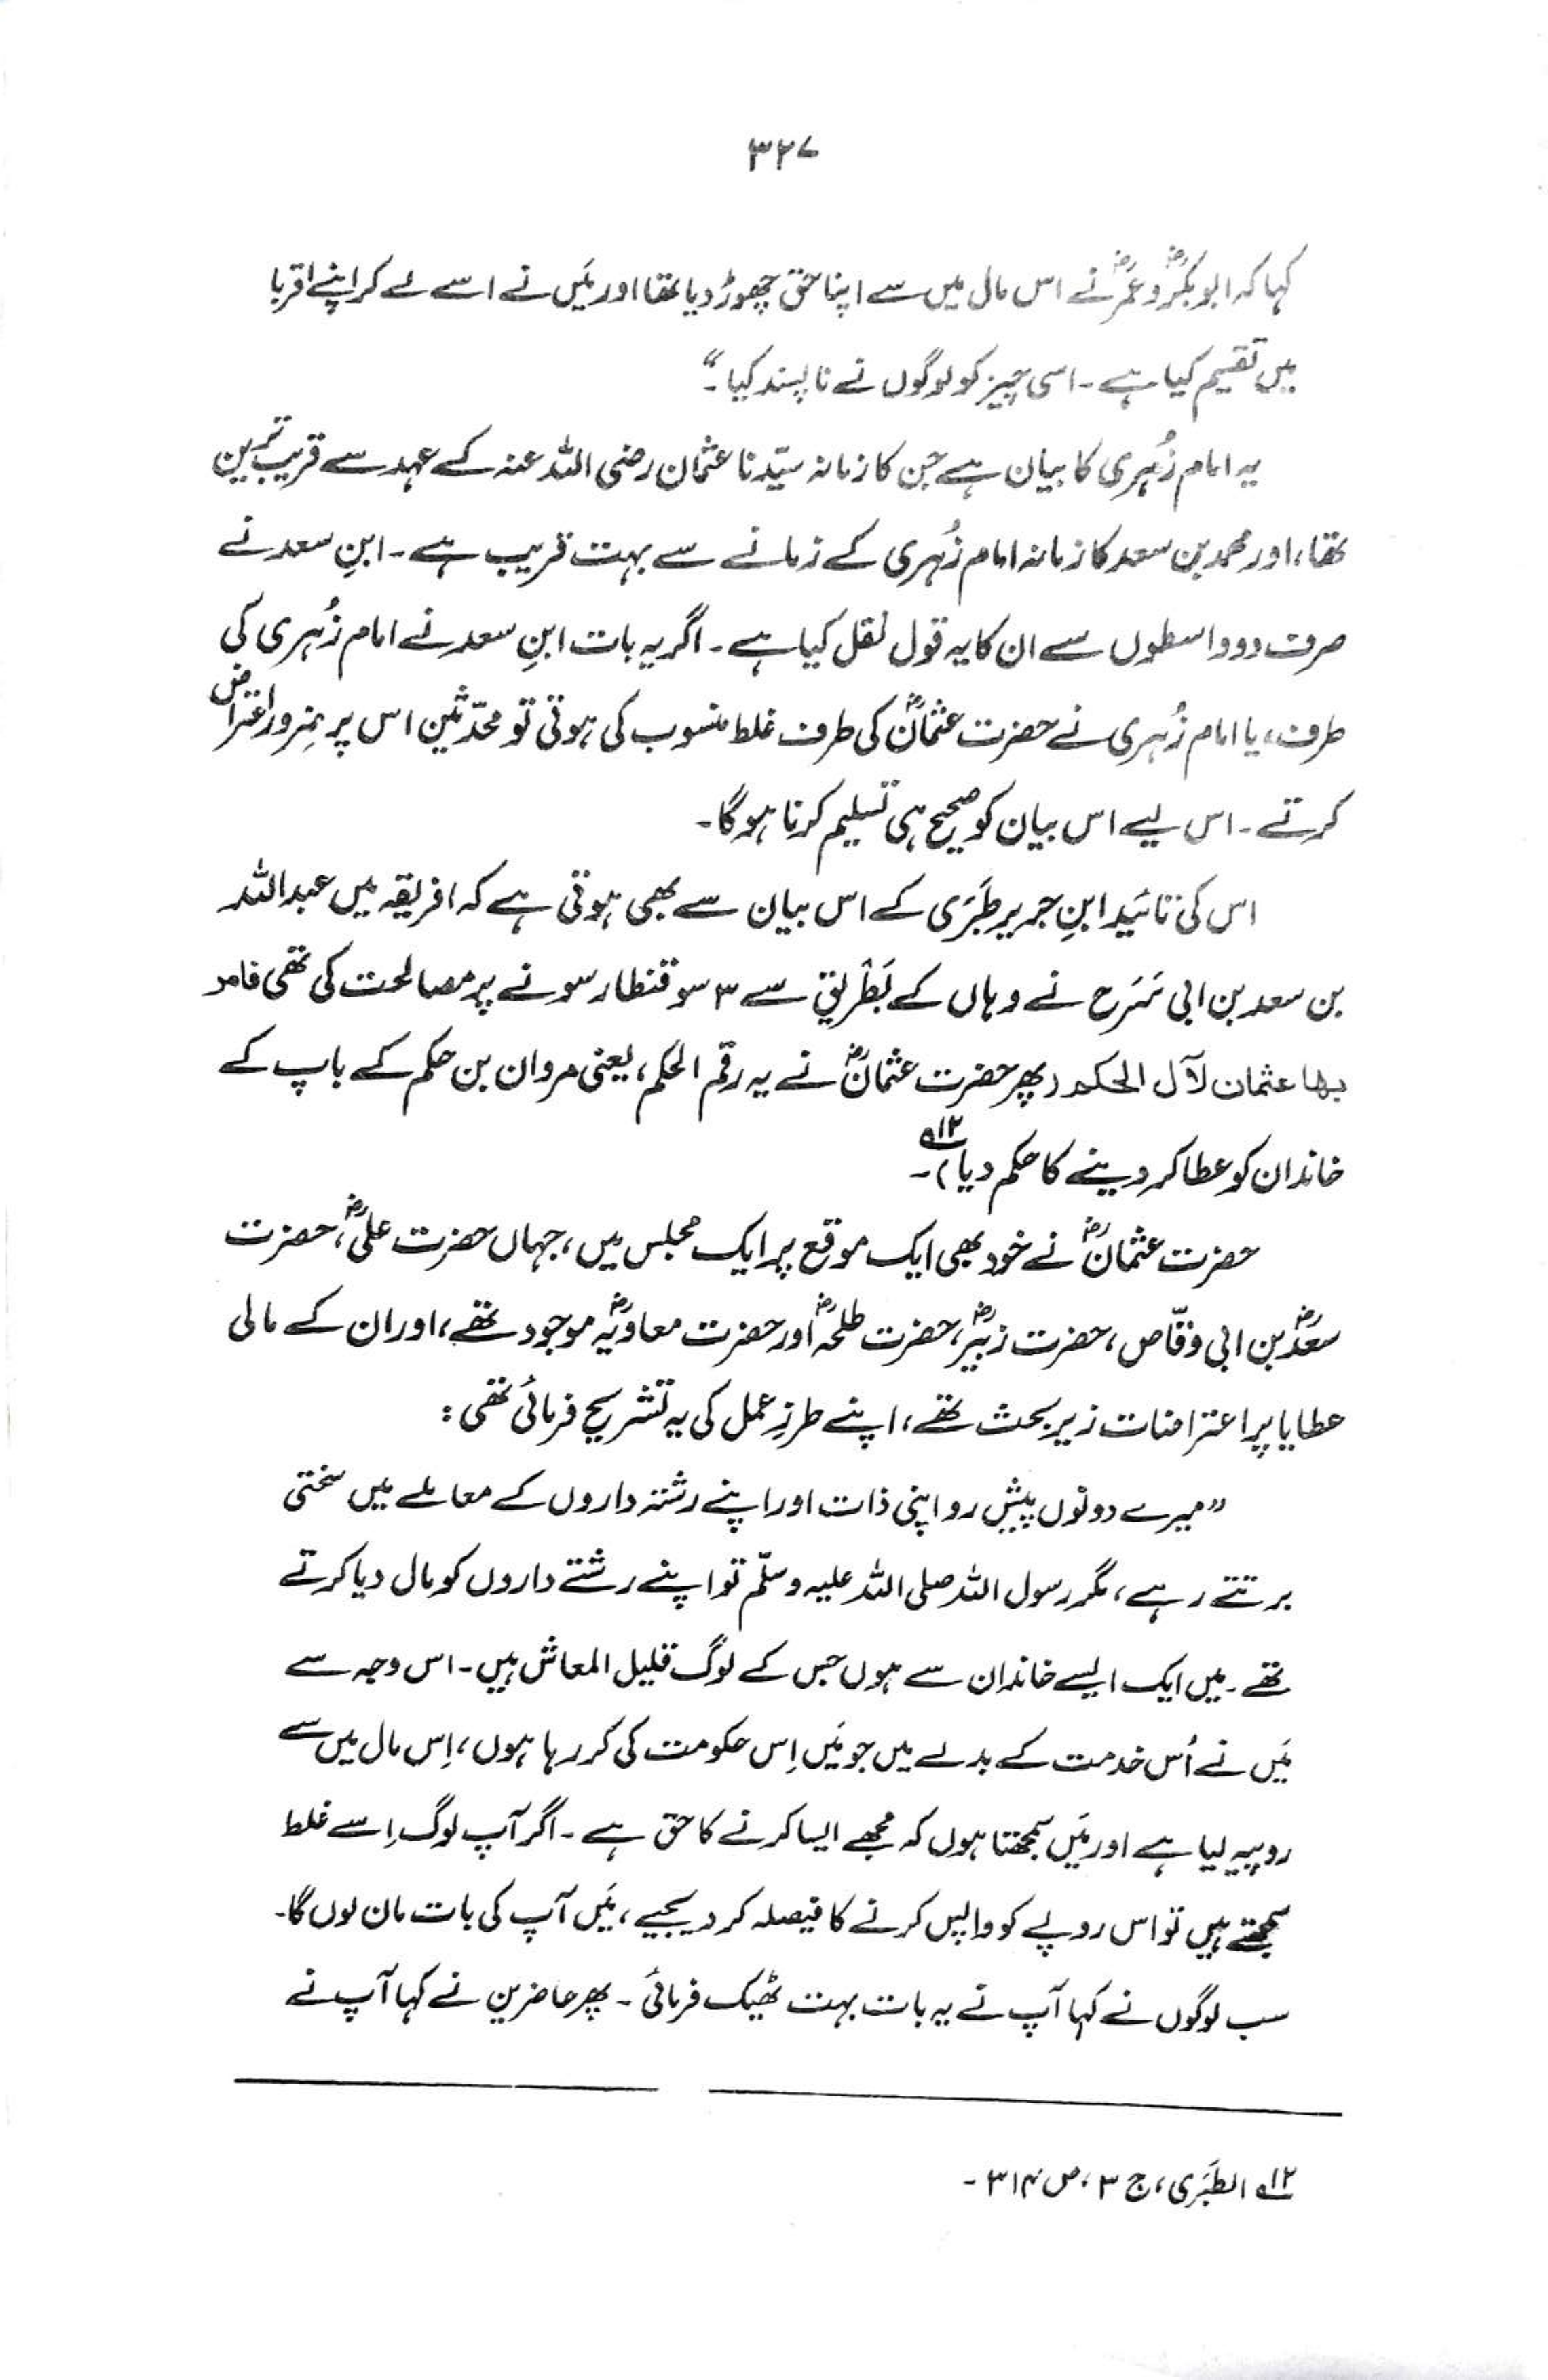 ۳۲۷
کہا کہ ابوبکرؓ و عمرؓ نے اس مال میں سے اپنا حق چھوڑ دیا تھا اور مَیں نے اسے لے کر اپنے اقربا
میں تقسیم کیا ہے۔ اسی چیز کو لوگوں نے ناپسند کیا۔“
یہ امام زُہری کا بیان ہے جن کا زمانہ سیّدنا عثمان رضی اللہ عنہ کے عہد سے قریب ترین
تھا، اور محمد بن سعد کا زمانہ امام زُہری کے زمانے سے بہت قریب ہے۔ ابنِ سعد نے
صرف دو واسطوں سے ان کا یہ قول نقل کیا ہے۔ اگر یہ بات ابنِ سعد نے امام زُہری کی
طرف، یا امام زُہری نے حضرت عثمانؓ کی طرف غلط منسوب کی ہوتی تو محدّثین اس پر ضرور اعتراض
کرتے۔ اس لیے اس بیان کو صحیح ہی تسلیم کرنا ہوگا۔
اس کی تائید ابنِ جریر طَبَری کے اس بیان سے بھی ہوتی ہے کہ افریقہ میں عبداللہ
بن سعد بن ابی سَرح نے وہاں کے بَطْریق سے ۳ سو قنطار سونے پر مصالحت کی تھی فامر
بھا عثمان لآل الحکم (پھر حضرت عثمانؓ نے یہ رقم الحکم، یعنی مروان بن حکم کے باپ کے
خاندان کو عطا کر دینے کا حکم دیا)۱۲؎۔
حضرت عثمانؓ نے خود بھی ایک موقع پر ایک مجلس میں، جہاں حضرت علیؓ، حضرت
سعدؓ بن ابی وقّاص، حضرت زبیرؓ، حضرت طلحہؓ اور حضرت معاویہؓ موجود تھے، اور ان کے مالی
عطایا پر اعتراضات زیرِ بحث تھے، اپنے طرزِ عمل کی یہ تشریح فرمائی تھی:
”میرے دونوں پیش رو اپنی ذات اور اپنے رشتہ داروں کے معاملے میں سختی
برتتے رہے، مگر رسول اللہ صلی اللہ علیہ وسلّم تو اپنے رشتے داروں کو مال دیا کرتے
تھے۔ میں ایک ایسے خاندان سے ہوں جس کے لوگ قلیل المعاش ہیں۔ اس وجہ سے
مَیں نے اُس خدمت کے بدلے میں جو مَیں اِس حکومت کی کر رہا ہوں، اِس مال میں سے
روپیہ لیا ہے اور مَیں سمجھتا ہوں کہ مجھے ایسا کرنے کا حق ہے۔ اگر آپ لوگ اِسے غلط
سمجھتے ہیں تو اس روپے کو واپس کرنے کا فیصلہ کر دیجیے، مَیں آپ کی بات مان لوں گا۔
سب لوگوں نے کہا آپ نے یہ بات بہت ٹھیک فرمائی۔ پھر حاضرین نے کہا آپ نے
۱۲؎ الطَبَری، ج ۳، ص ۳۱۴۔